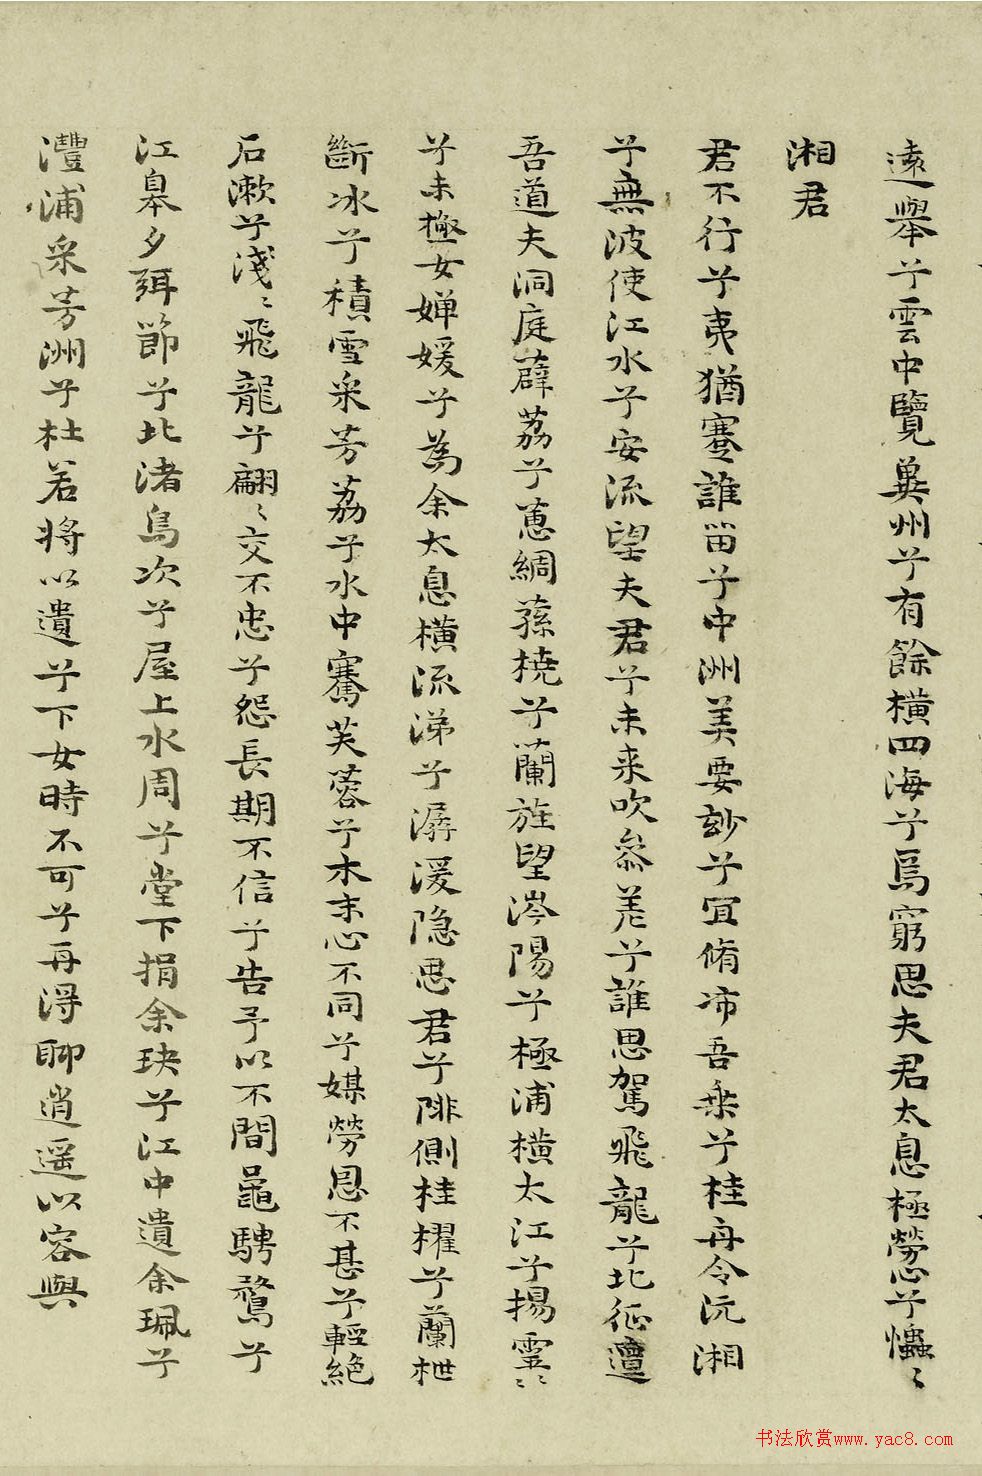 遠舉兮雲中覽兾州兮有餘橫四海兮焉窮思夫君太息極勞心兮忡忡
湘君
君不行兮夷猶蹇誰留兮中洲美要玅兮宜脩沛吾乗兮桂舟令沅湘
兮無波使江水兮安流望夫君兮未来吹參差兮誰思駕飛龍兮北征邅
吾道夫洞庭薜荔兮蕙綢蓀橈兮蘭旌望涔陽兮極浦橫太江兮揚靈〻
兮未極女嬋媛兮為余太息橫流涕兮潺湲隐思君兮陫側桂櫂兮蘭枻
斵冰兮積雪采芳荔兮水中搴芙蓉兮木末心不同兮媒勞恩不甚兮輕絶
石漱兮淺〻飛龍兮翩〻交不忠兮怨長期不信兮告予以不間鼂騁騖兮
江皋夕弭節兮北渚鳥次兮屋上水周兮堂下捐余玦兮江中遺余珮兮
澧浦采芳洲兮杜若将以遺兮下女時不可兮再得聊逍遥以容與
书法欣赏www.yac8.com